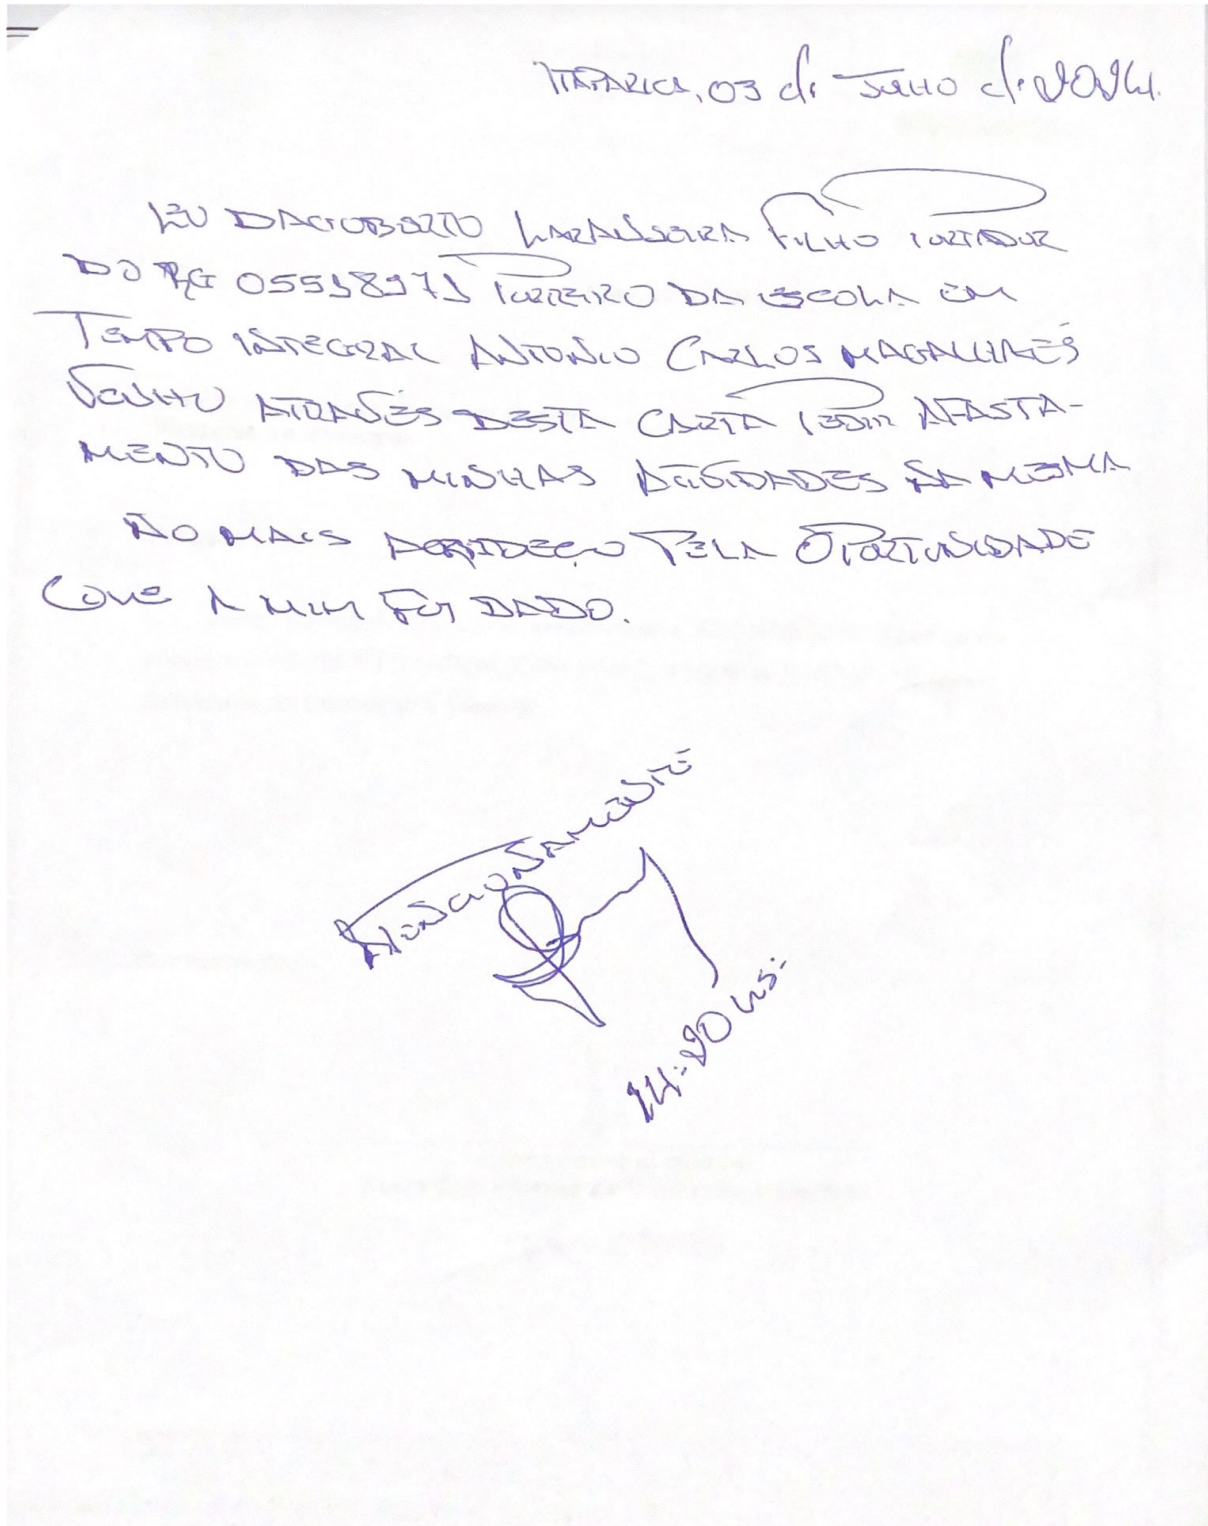 ITAPARICA, 03 de Julho de 2024.
EU DAGOBERTO LARANJEIRA FILHO PORTADOR
DO RG 05518971 PORTEIRO DA ESCOLA EM
TEMPO INTEGRAL ANTONIO CARLOS MAGALHÃES
VENHO ATRAVÉS DESTA CARTA PEDIR AFASTA-
MENTO DAS MINHAS ATIVIDADES NA MESMA
NO MAIS AGRADEÇO PELA OPORTUNIDADE
QUE A MIM FOI DADO.
ATENCIOSAMENTE
14:20 hs: